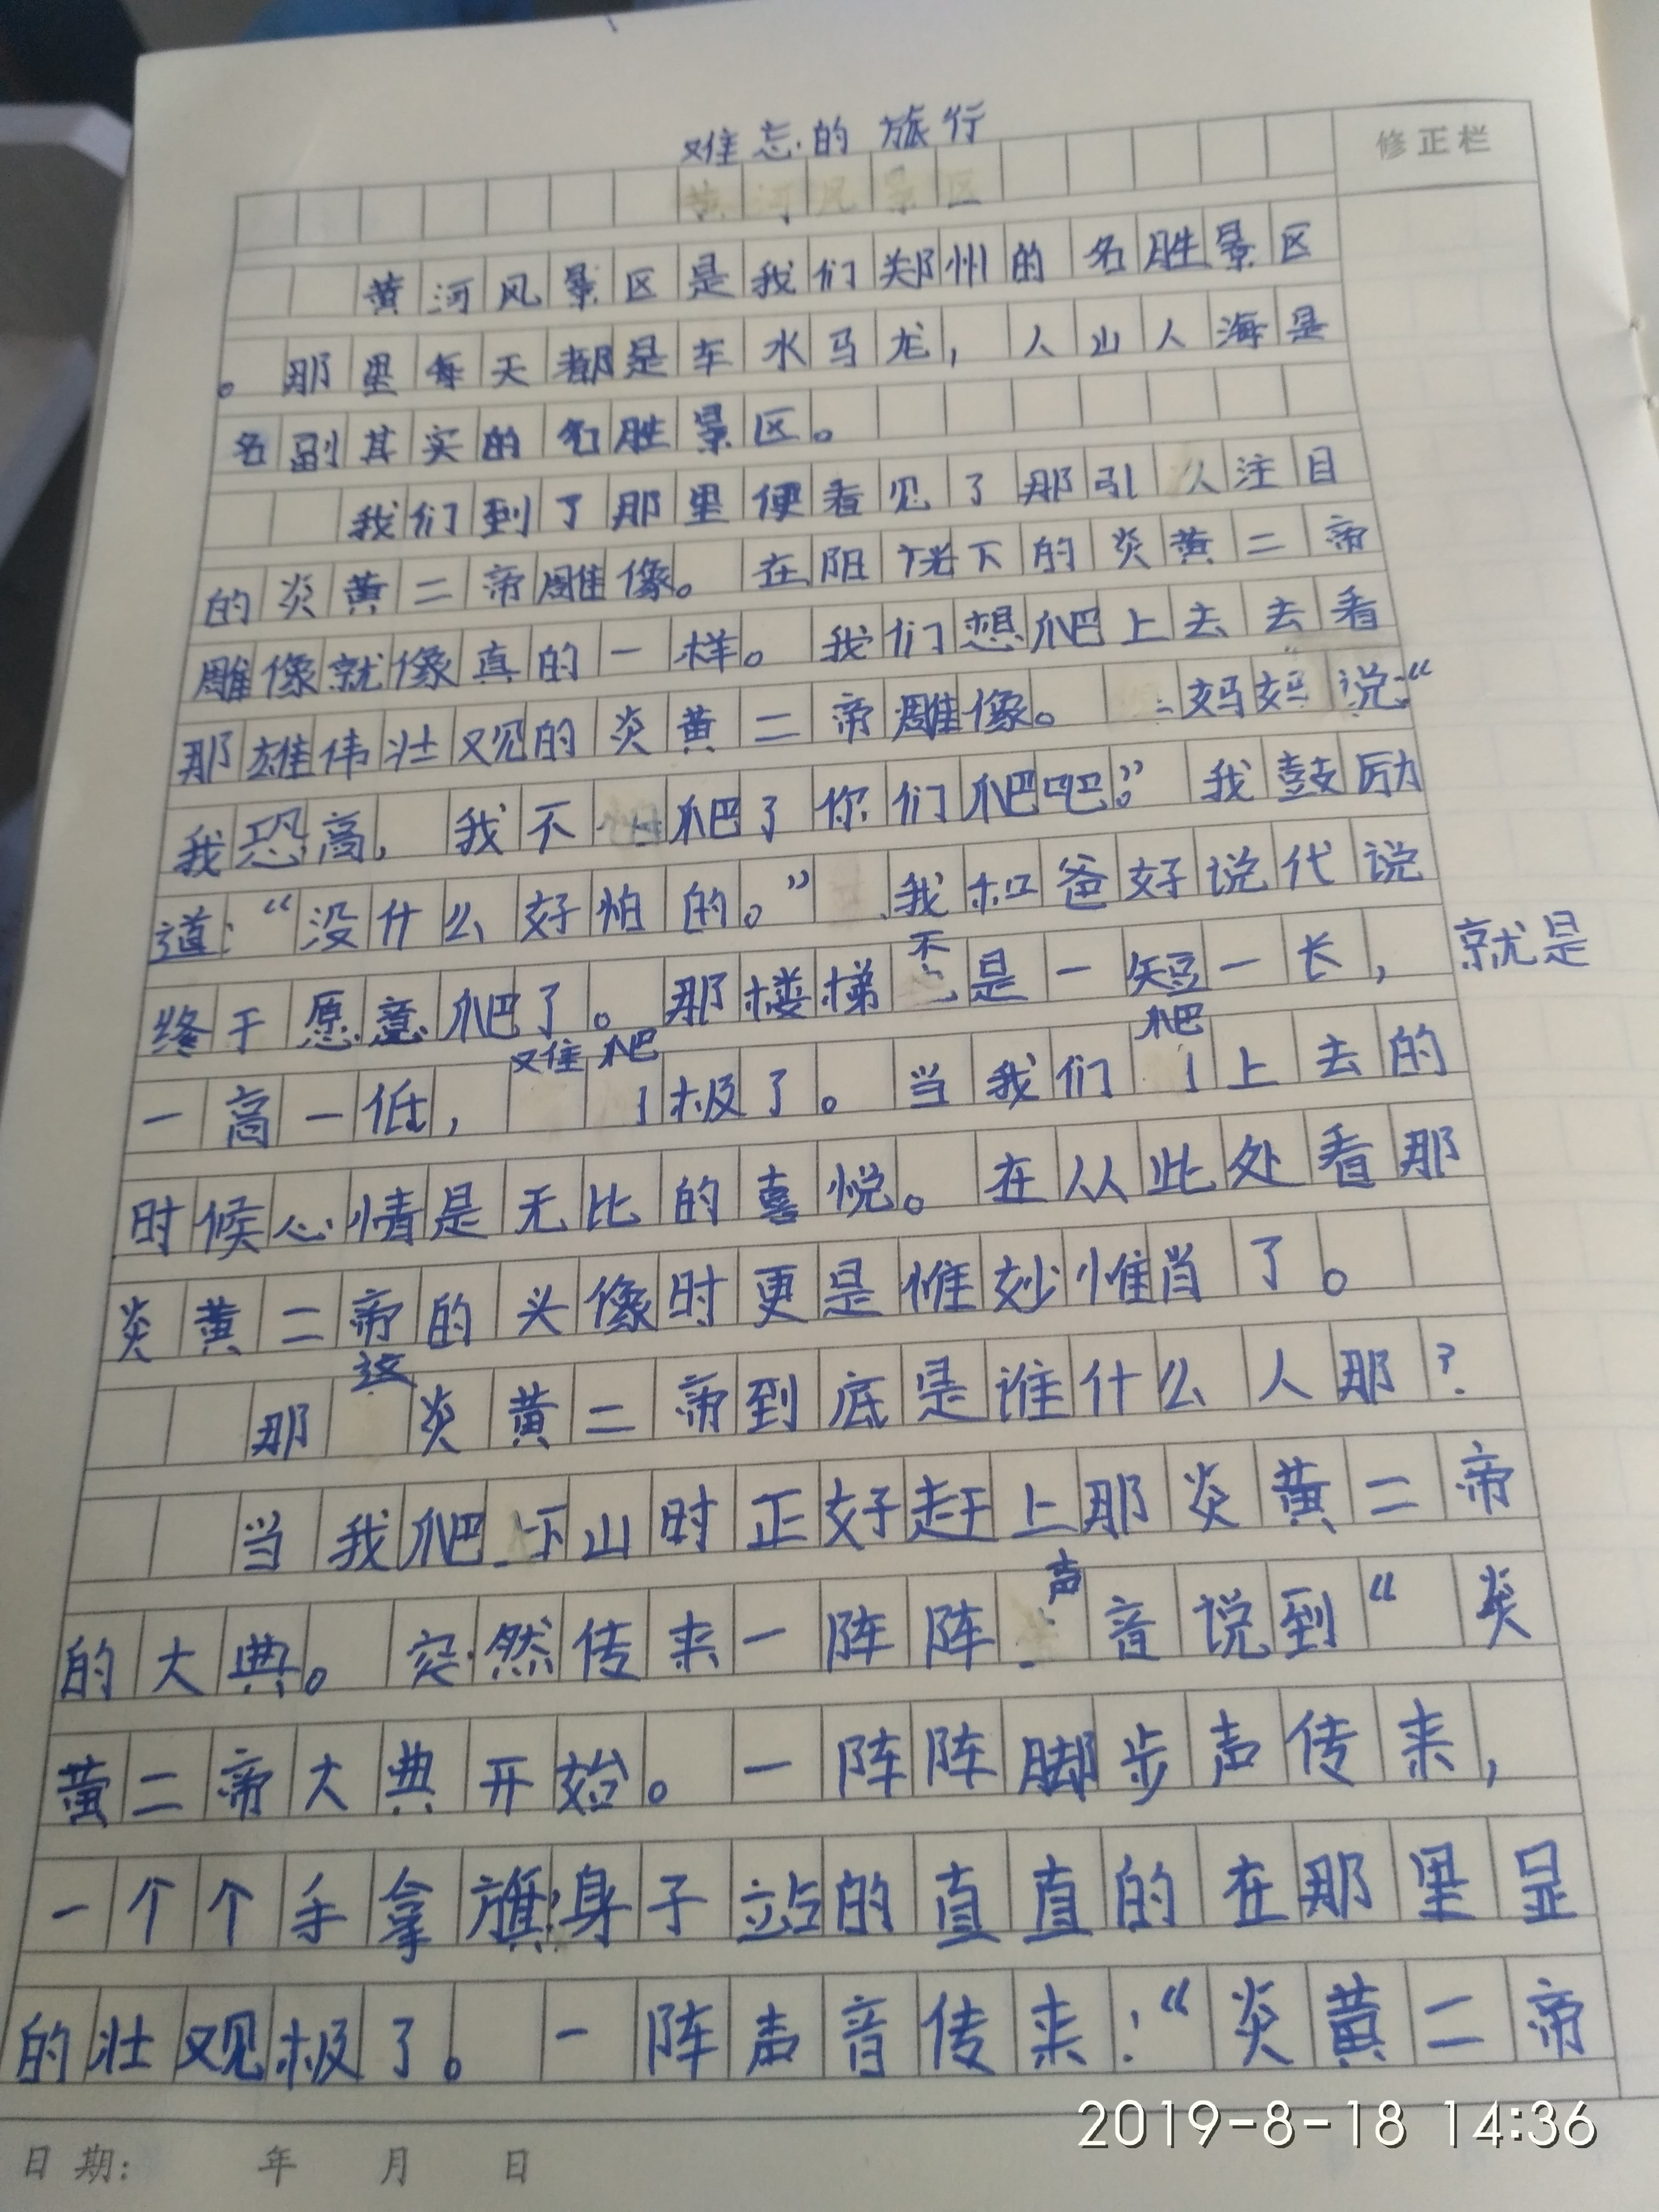 难忘的旅行
黄河风景区
修正栏
黄河风景区是我们郑州的名胜景区
。那里每天都是车水马龙，人山人海是
名副其实的名胜景区。
我们到了那里便看见了那引人注目
的炎黄二帝雕像。在阳光下的炎黄二帝
雕像就像真的一样。我们想爬上去去看
那雄伟壮观的炎黄二帝雕像。妈妈说：“
我恐高，我不爬了你们爬吧。”我鼓励
道：“没什么好怕的。”我和爸好说代说
终于愿意爬了。那楼梯不是一短一长，就是
一高一低，难爬极了。当我们爬上去的
时候心情是无比的喜悦。在从此处看那
炎黄二帝的头像时更是惟妙惟肖了。
那这炎黄二帝到底是谁什么人那？
当我爬下山时正好赶上那炎黄二帝
的大典。突然传来一阵阵声音说到“炎
黄二帝大典开始。一阵阵脚步声传来，
一个个手拿旗身子站的直直的在那里显
的壮观极了。一阵声音传来：“炎黄二帝
日期：　年　月　日
2019-8-18 14:36